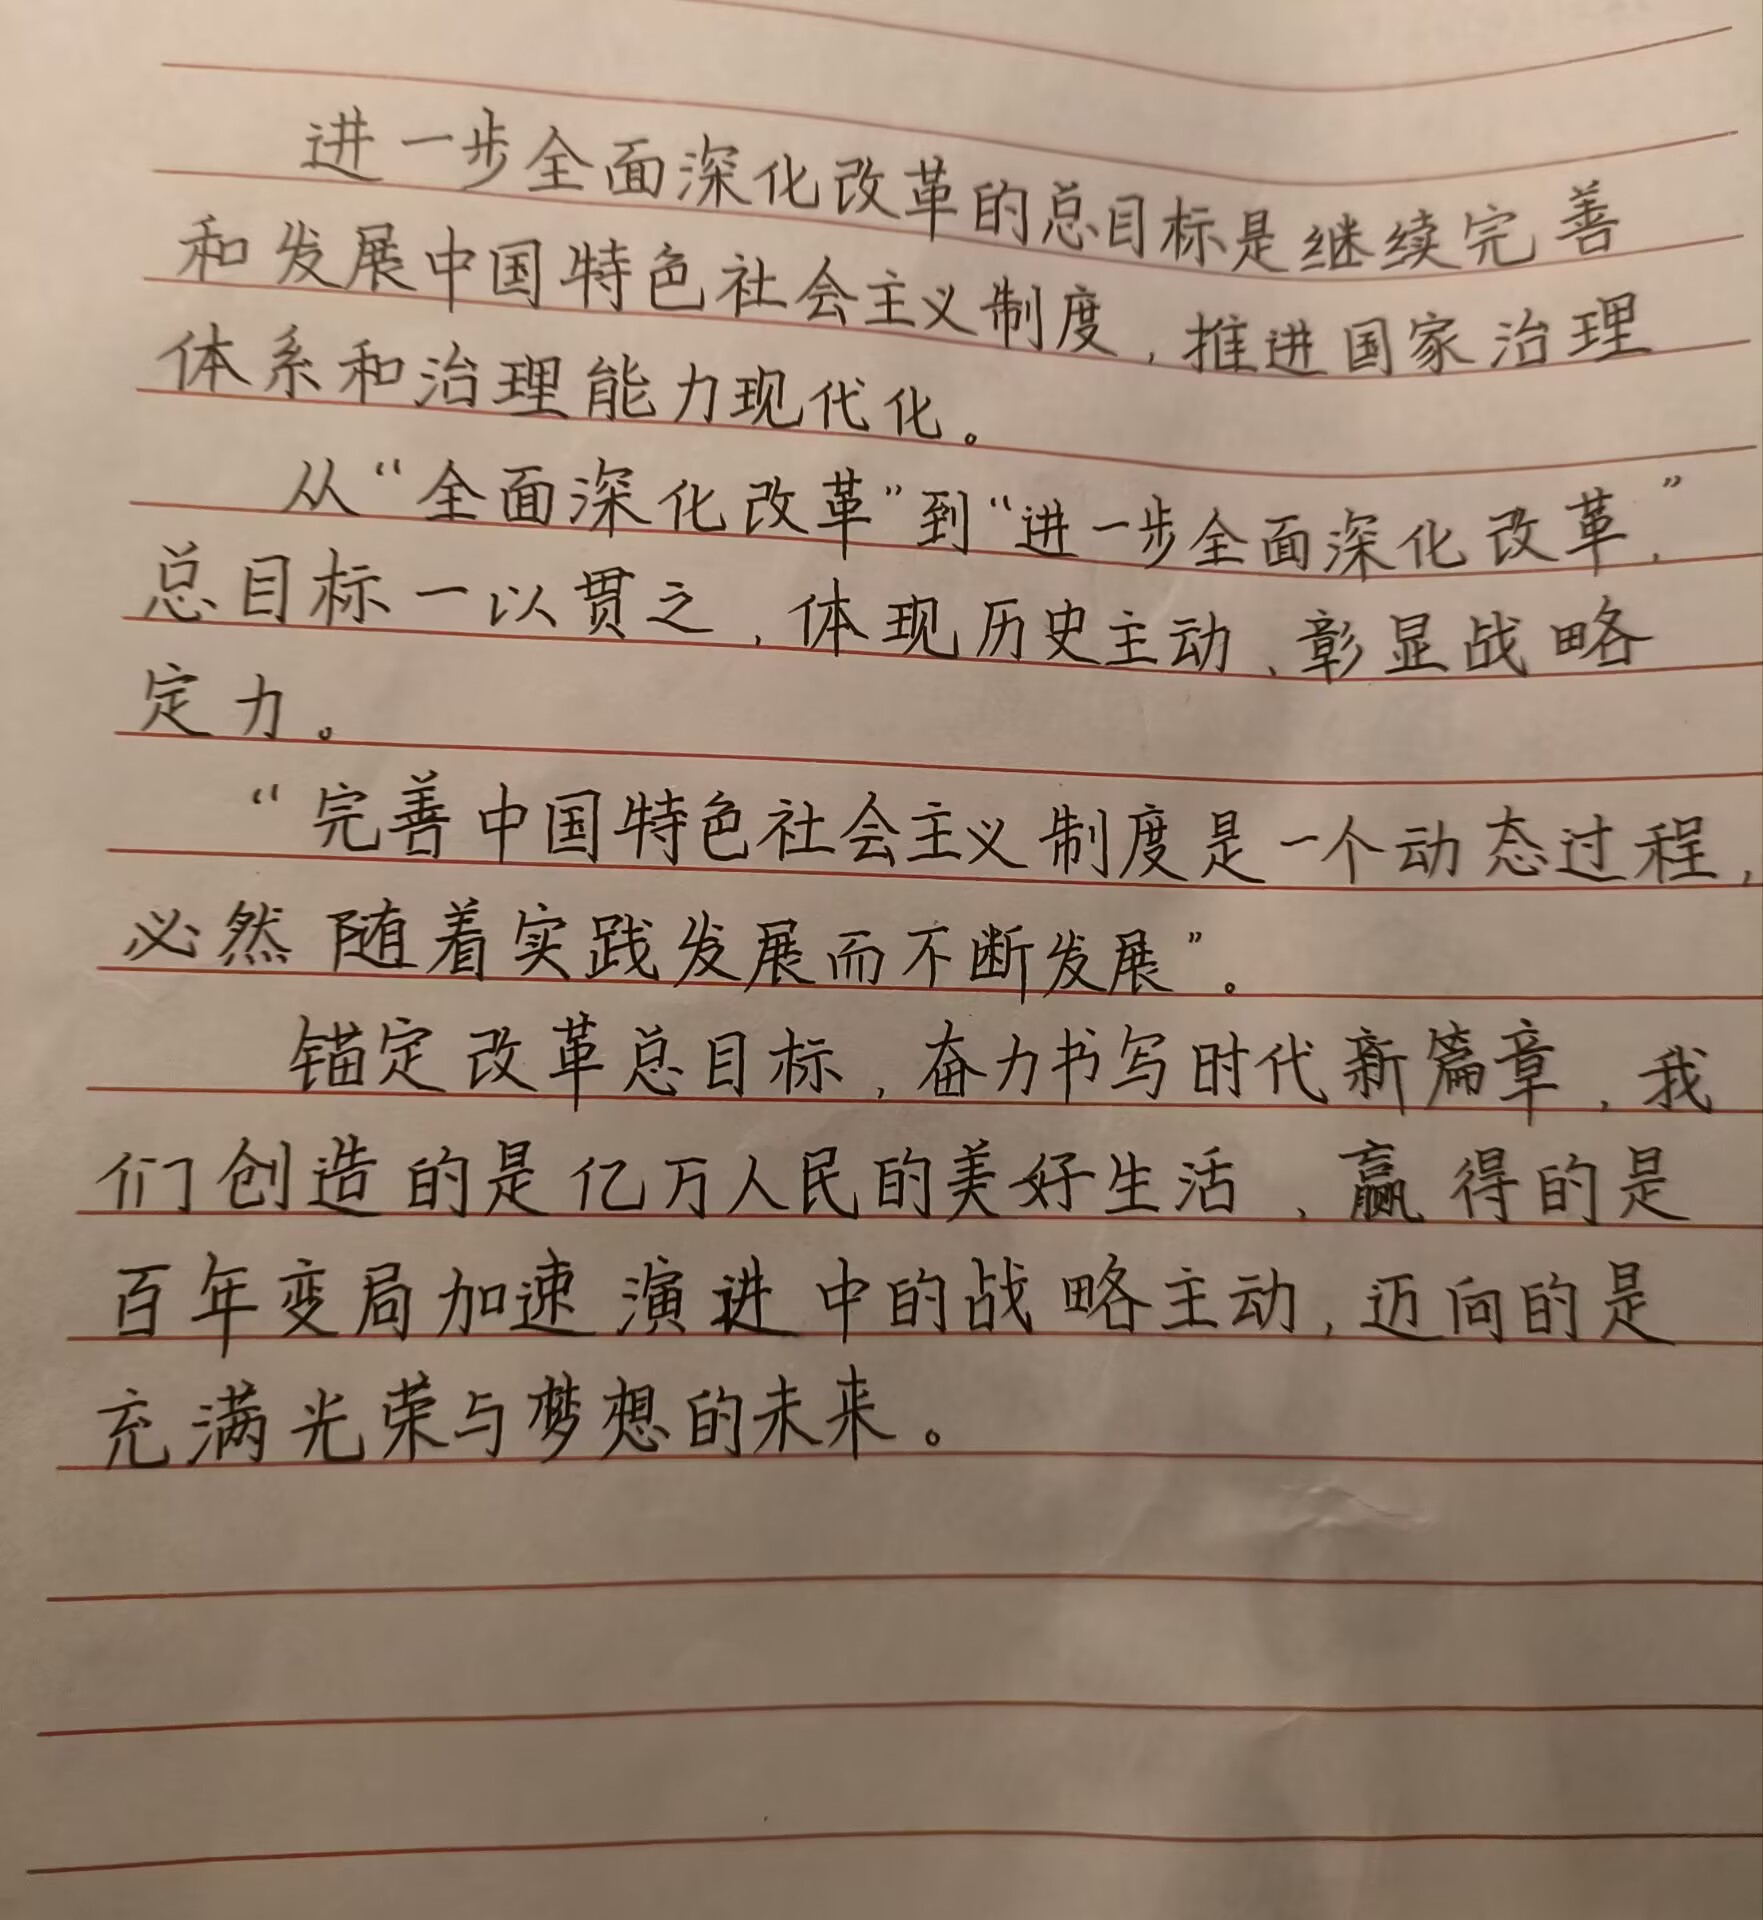 进一步全面深化改革的总目标是继续完善
和发展中国特色社会主义制度，推进国家治理
体系和治理能力现代化。
从“全面深化改革”到“进一步全面深化改革，”
总目标一以贯之，体现历史主动、彰显战略
定力。
“完善中国特色社会主义制度是一个动态过程，
必然随着实践发展而不断发展”。
锚定改革总目标，奋力书写时代新篇章，我
们创造的是亿万人民的美好生活，赢得的是
百年变局加速演进中的战略主动，迈向的是
充满光荣与梦想的未来。